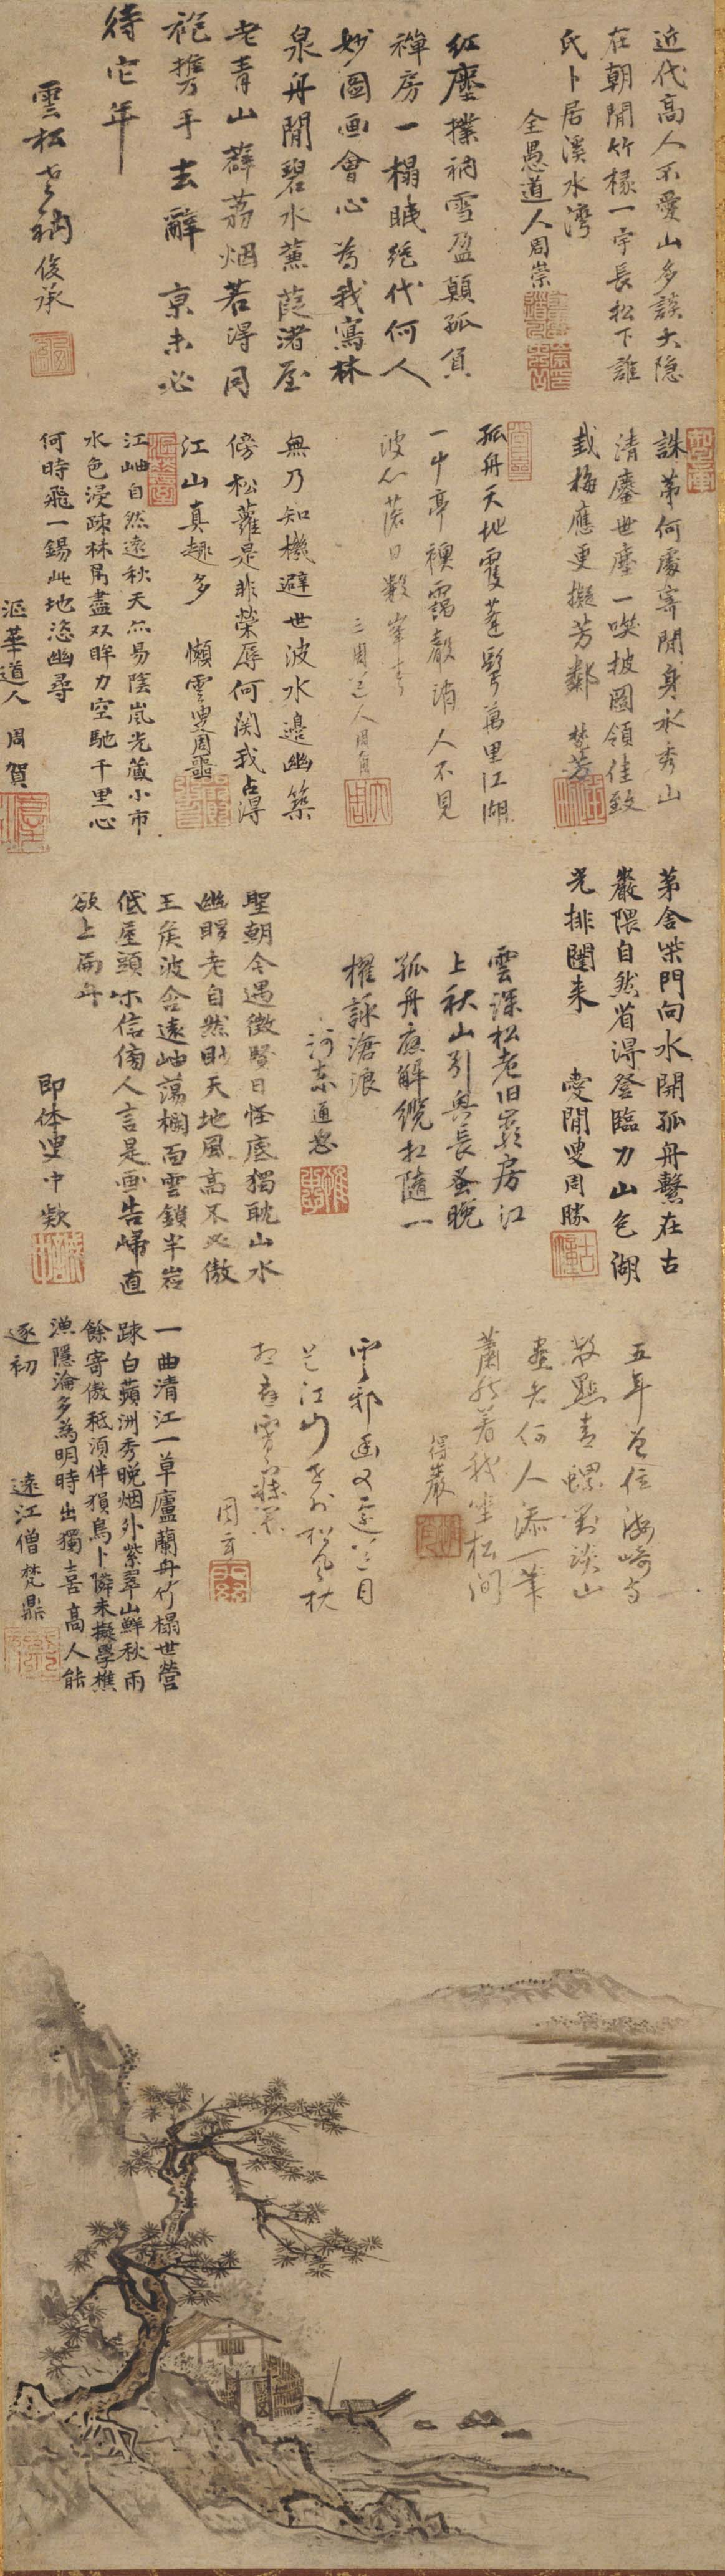 近代高人不愛山多談大隱
在朝閒竹椽一宇長松下誰
氏卜居溪水灣
全愚道人周崇
紅塵撲衲雪盈顛孤負
禪房一榻眠絕代何人
妙圖画會心為我寫林
泉舟閒碧水蒹葭渚屋
老青山薜荔烟若得同
袍携手去辭京未必
待它年
雲松老衲俊承
誅茅何處寄閒身水秀山
清塵世塵一喚披圖領佳致
栽梅應更擬芳鄰 梵芳
孤舟天地一
萬里江湖
一草亭 人不見
波心落日數峯青
三周道人周
無乃知機避世波水邊幽築
傍松蘿是非榮辱何関我占得
江山真趣多 懶雲叟周噩
江岫自然遠秋天亦易陰嵐光藏小市
水色浸疎林用盡双眸力空馳千里心
何時飛一錫此地恣幽尋
漚華道人 周賀
茅舍柴門向水開孤舟繫在古
巖隈自然省得登臨力山色湖
光排闥来 愛閒叟周勝
雲深松老旧茅房江
上秋山引興長蚤晚
孤舟應解纜杠隨一
櫂詠滄浪
河東通恕
聖朝今遇徵賢日怪底獨耽山水
幽眼老自然時天地風高不必傲
王矦波含遠岫蕩欄面雲鎖半岩
低屋頭不信傍人言是画告歸直
欲上扁舟
即休叟中歎
五年
數點青螺對淡山
畫者何人添一筆
蕭然着我坐松間
得巖
雲邪
是江山
周玄
一曲清江一草廬蘭舟竹榻世營
疎白蘋洲秀晚烟外紫翠山鮮秋雨
餘寄傲秪須伴猿鳥卜隣未擬學樵
漁隱淪多為明時出獨喜高人能
逐初
遠江僧梵鼎